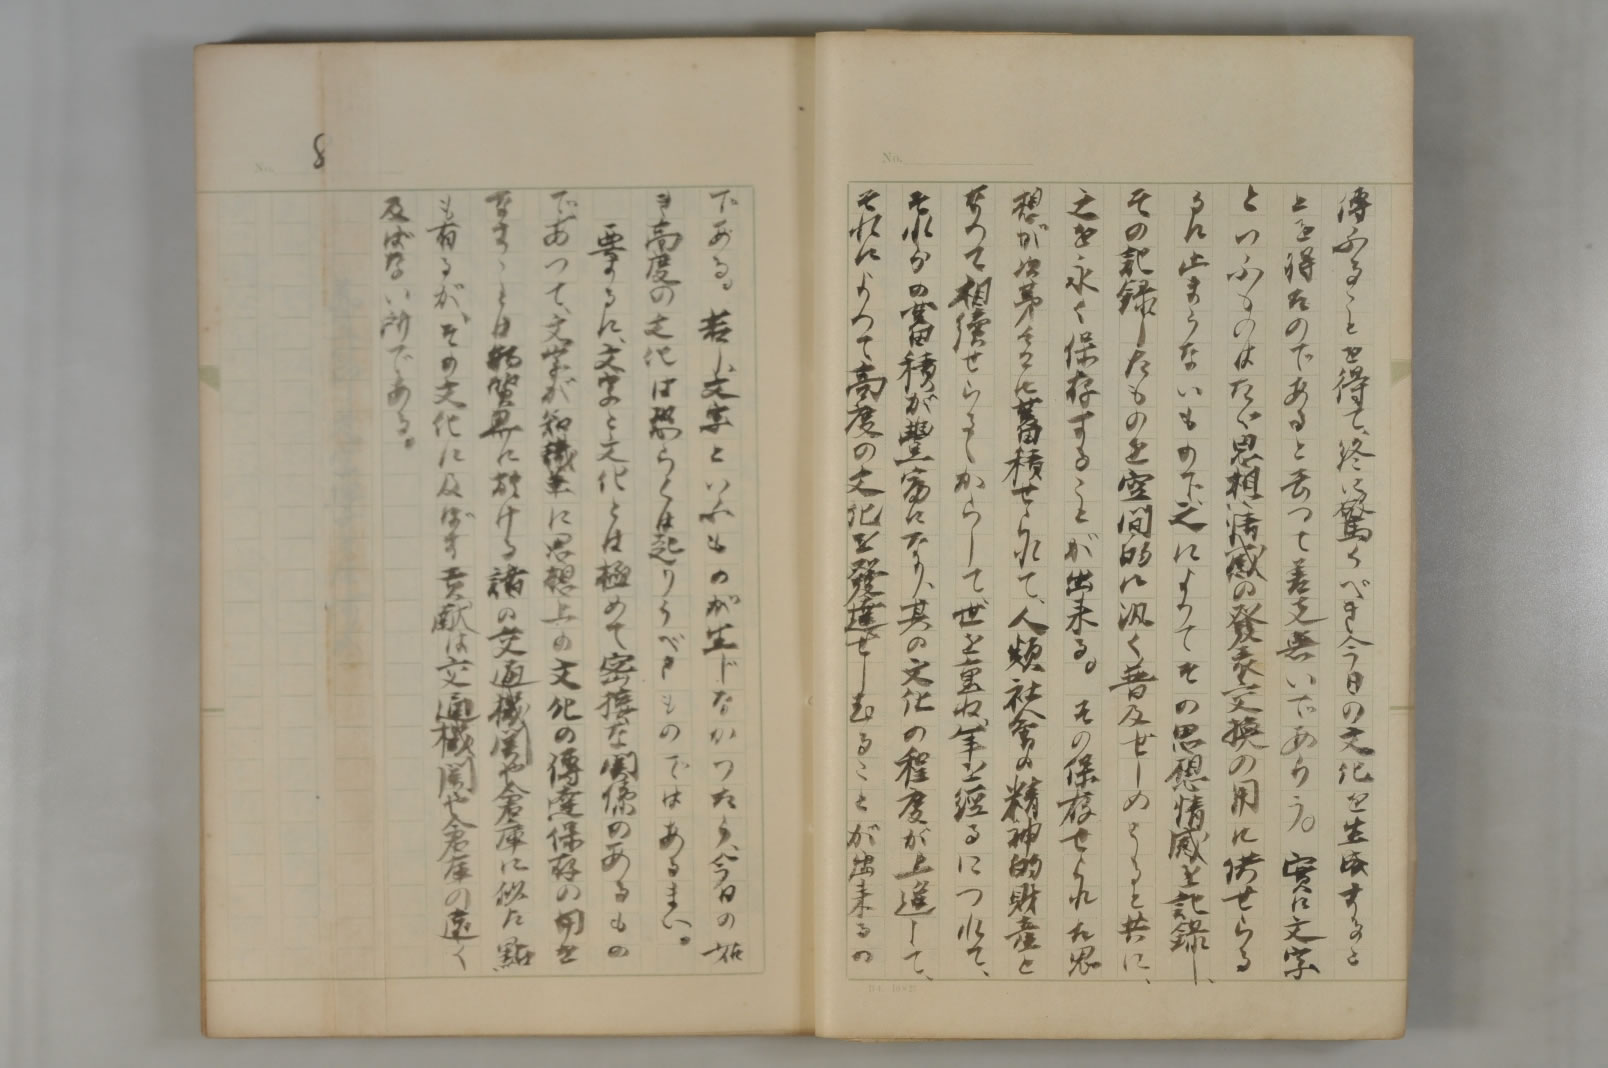 No.
傳ふることを得て、終に驚くべき今日の文化を生成するこ
とを得たのであると云つて差支無いであらう。實に文字
といふものはたゞ思想情感の發表交換の用に供せらる
るに止まらないもので、之によつてその思想情感を記録し、
その記録したものを空間的に汎く普及せしめうると共に、
之を永く保存することが出来る。その保存せられた思
想が次第々々に蓄積せられて、人類社會の精神的財産と
なつて相續せらるゝからして世を重ね、年を經るにつれて、
それらの蓄積が豊富になり、其の文化の程度が上進して、
それによつて高度の文化を發達せしむることが出来るの
8
No.
である。若し、文字といふものが生じなかつたら、今日の如
き高度の文化は恐らくは起りうべきものではあるまい。
要するに、文字と文化とは極めて密接な関係のあるもの
であつて、文字が知識並に思想上の文化の傳達保存の用を
なすことは物質界に於ける諸の交通機関や倉庫に似た點
も有るが、その文化に及ぼす貢献は交通機関や倉庫の遠く
及ばない所である。